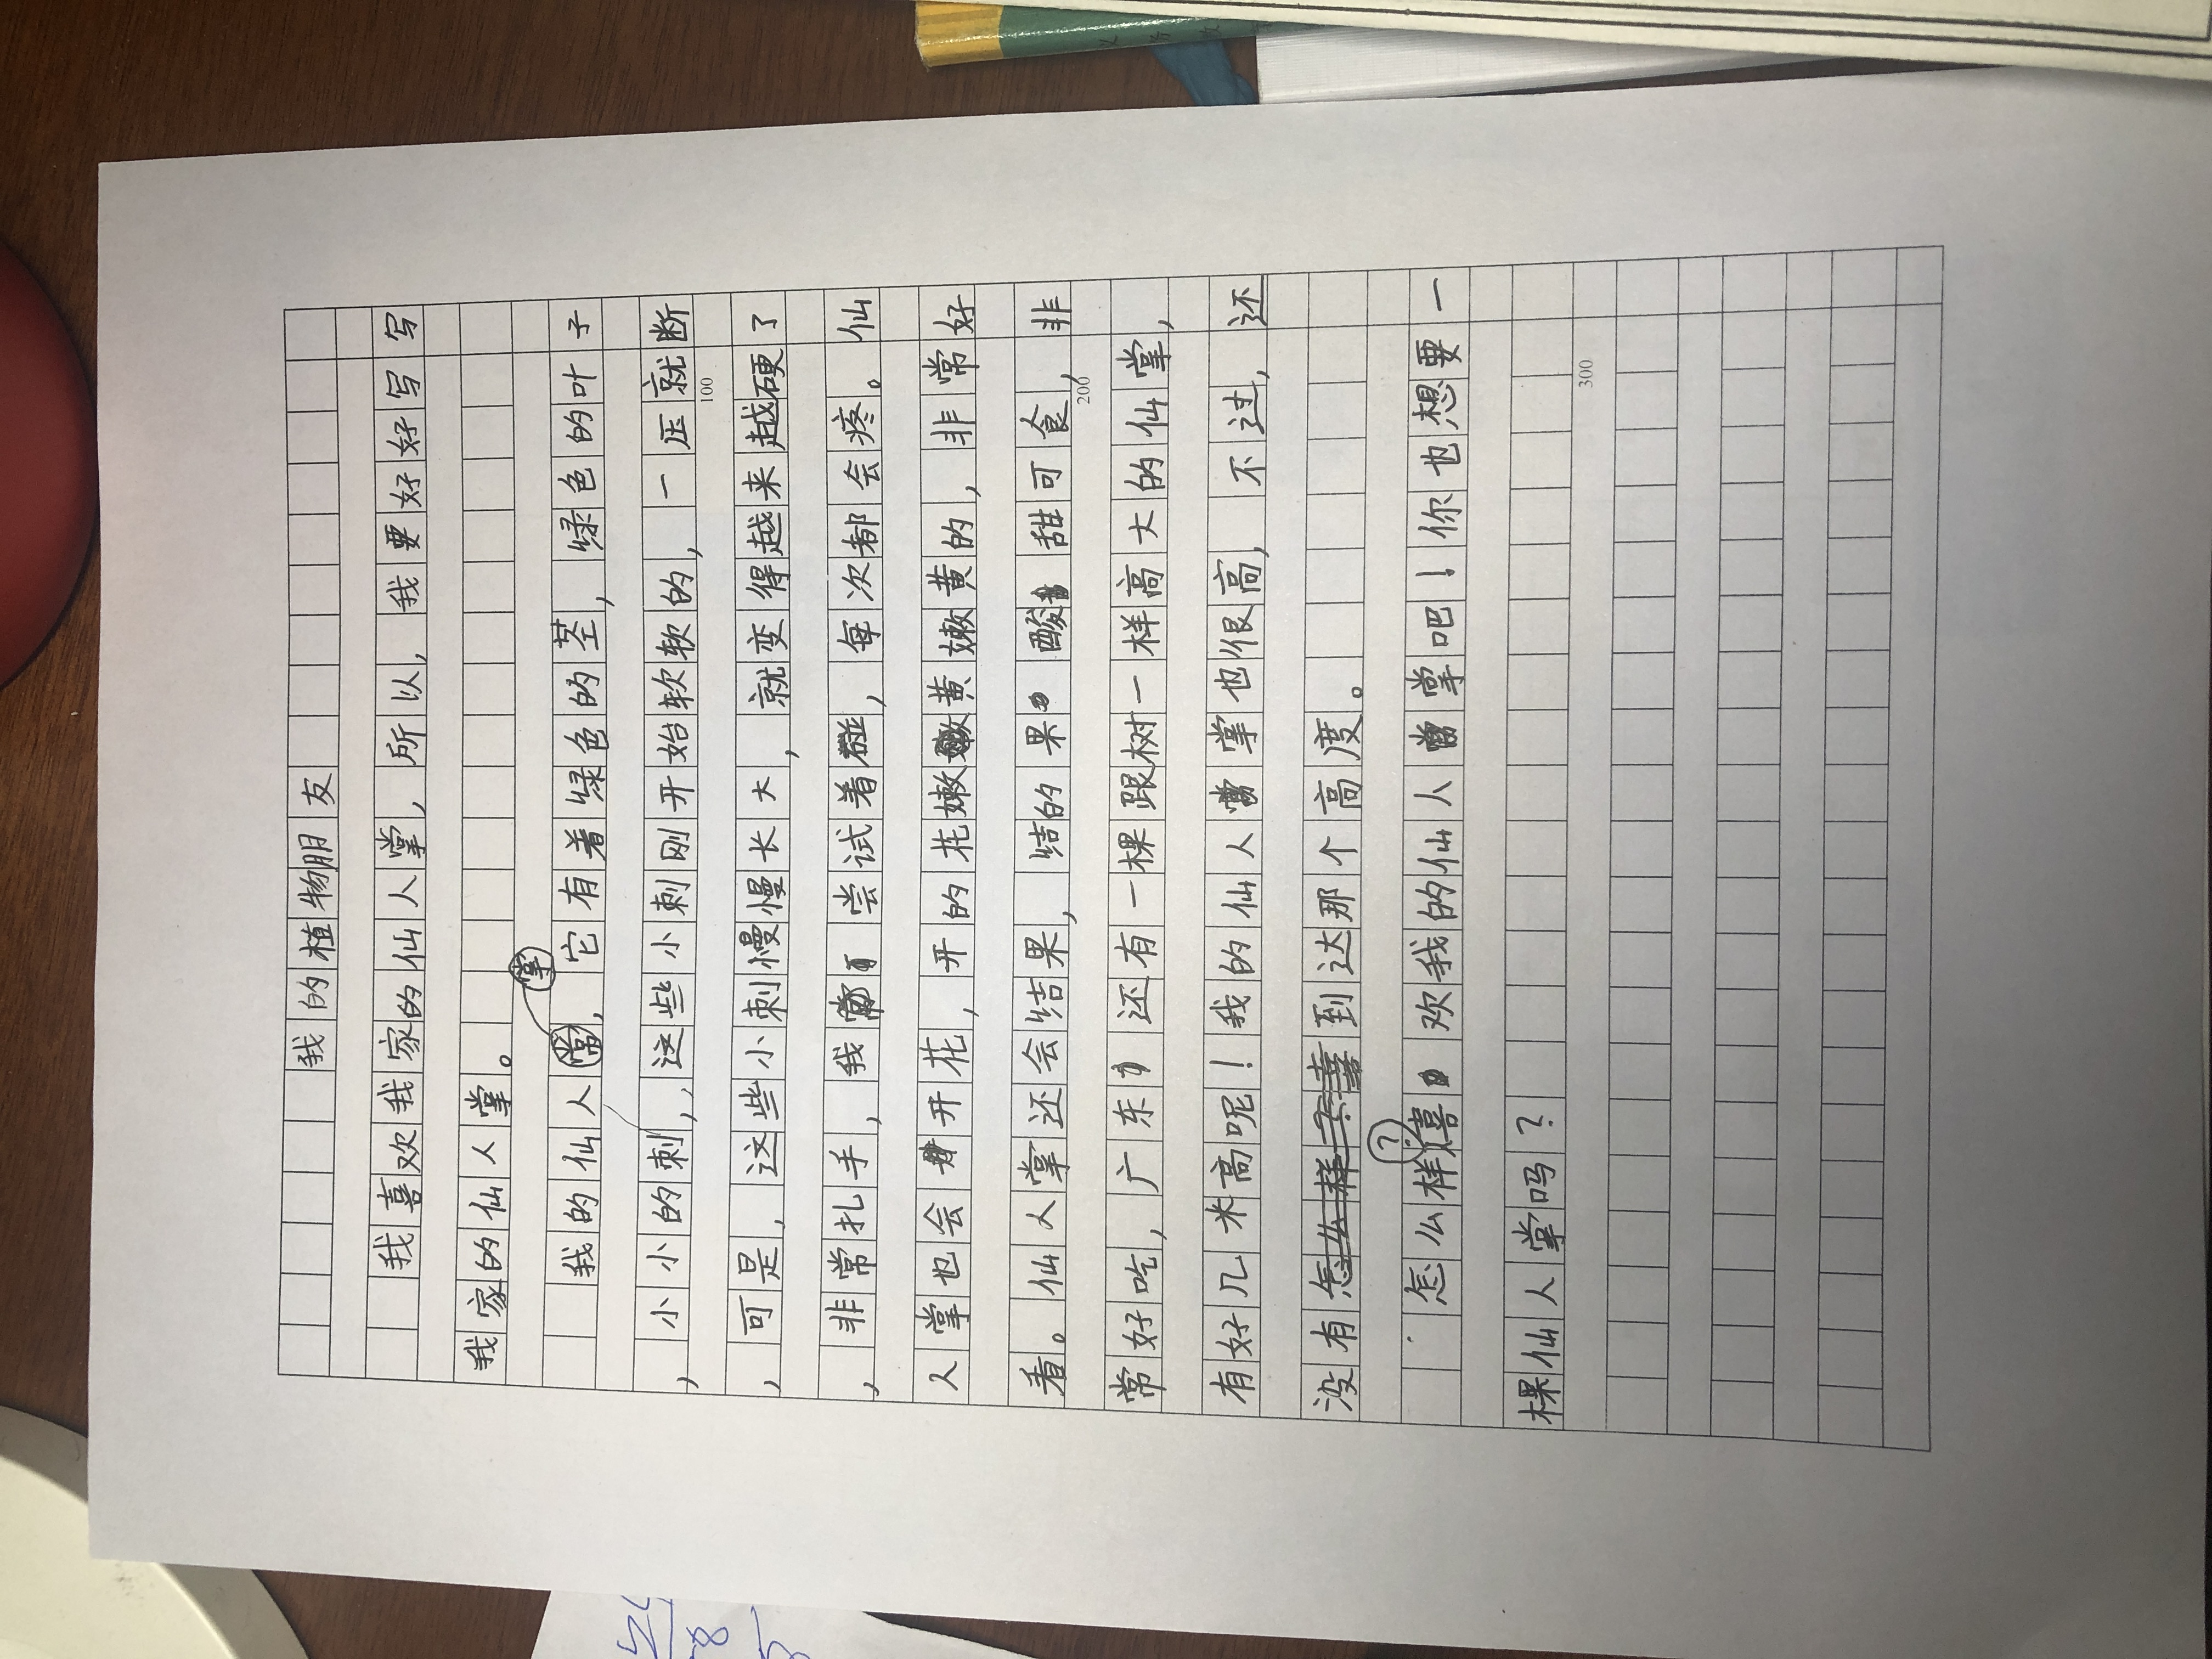 我的植物朋友
我喜欢我家的仙人掌，所以，我要好好写写
我家的仙人掌。
我的仙人掌，它有着绿色的茎，绿色的叶子
，小小的刺，这些小刺刚开始软软的，一压就断
100
，可是，这些小刺慢慢长大，就变得越来越硬了
，非常扎手，我尝试着碰，每次都会疼。仙
人掌也会开花，开的花嫩黄嫩黄的，非常好
看。仙人掌还会结果，结的果酸甜可食，非
200
常好吃，广东还有一棵跟树一样高大的仙掌，
有好几米高呢！我的仙人掌也很高，不过，还
没有到达那个高度。
怎么样？喜欢我的仙人掌吧！你也想要一
棵仙人掌吗？
300